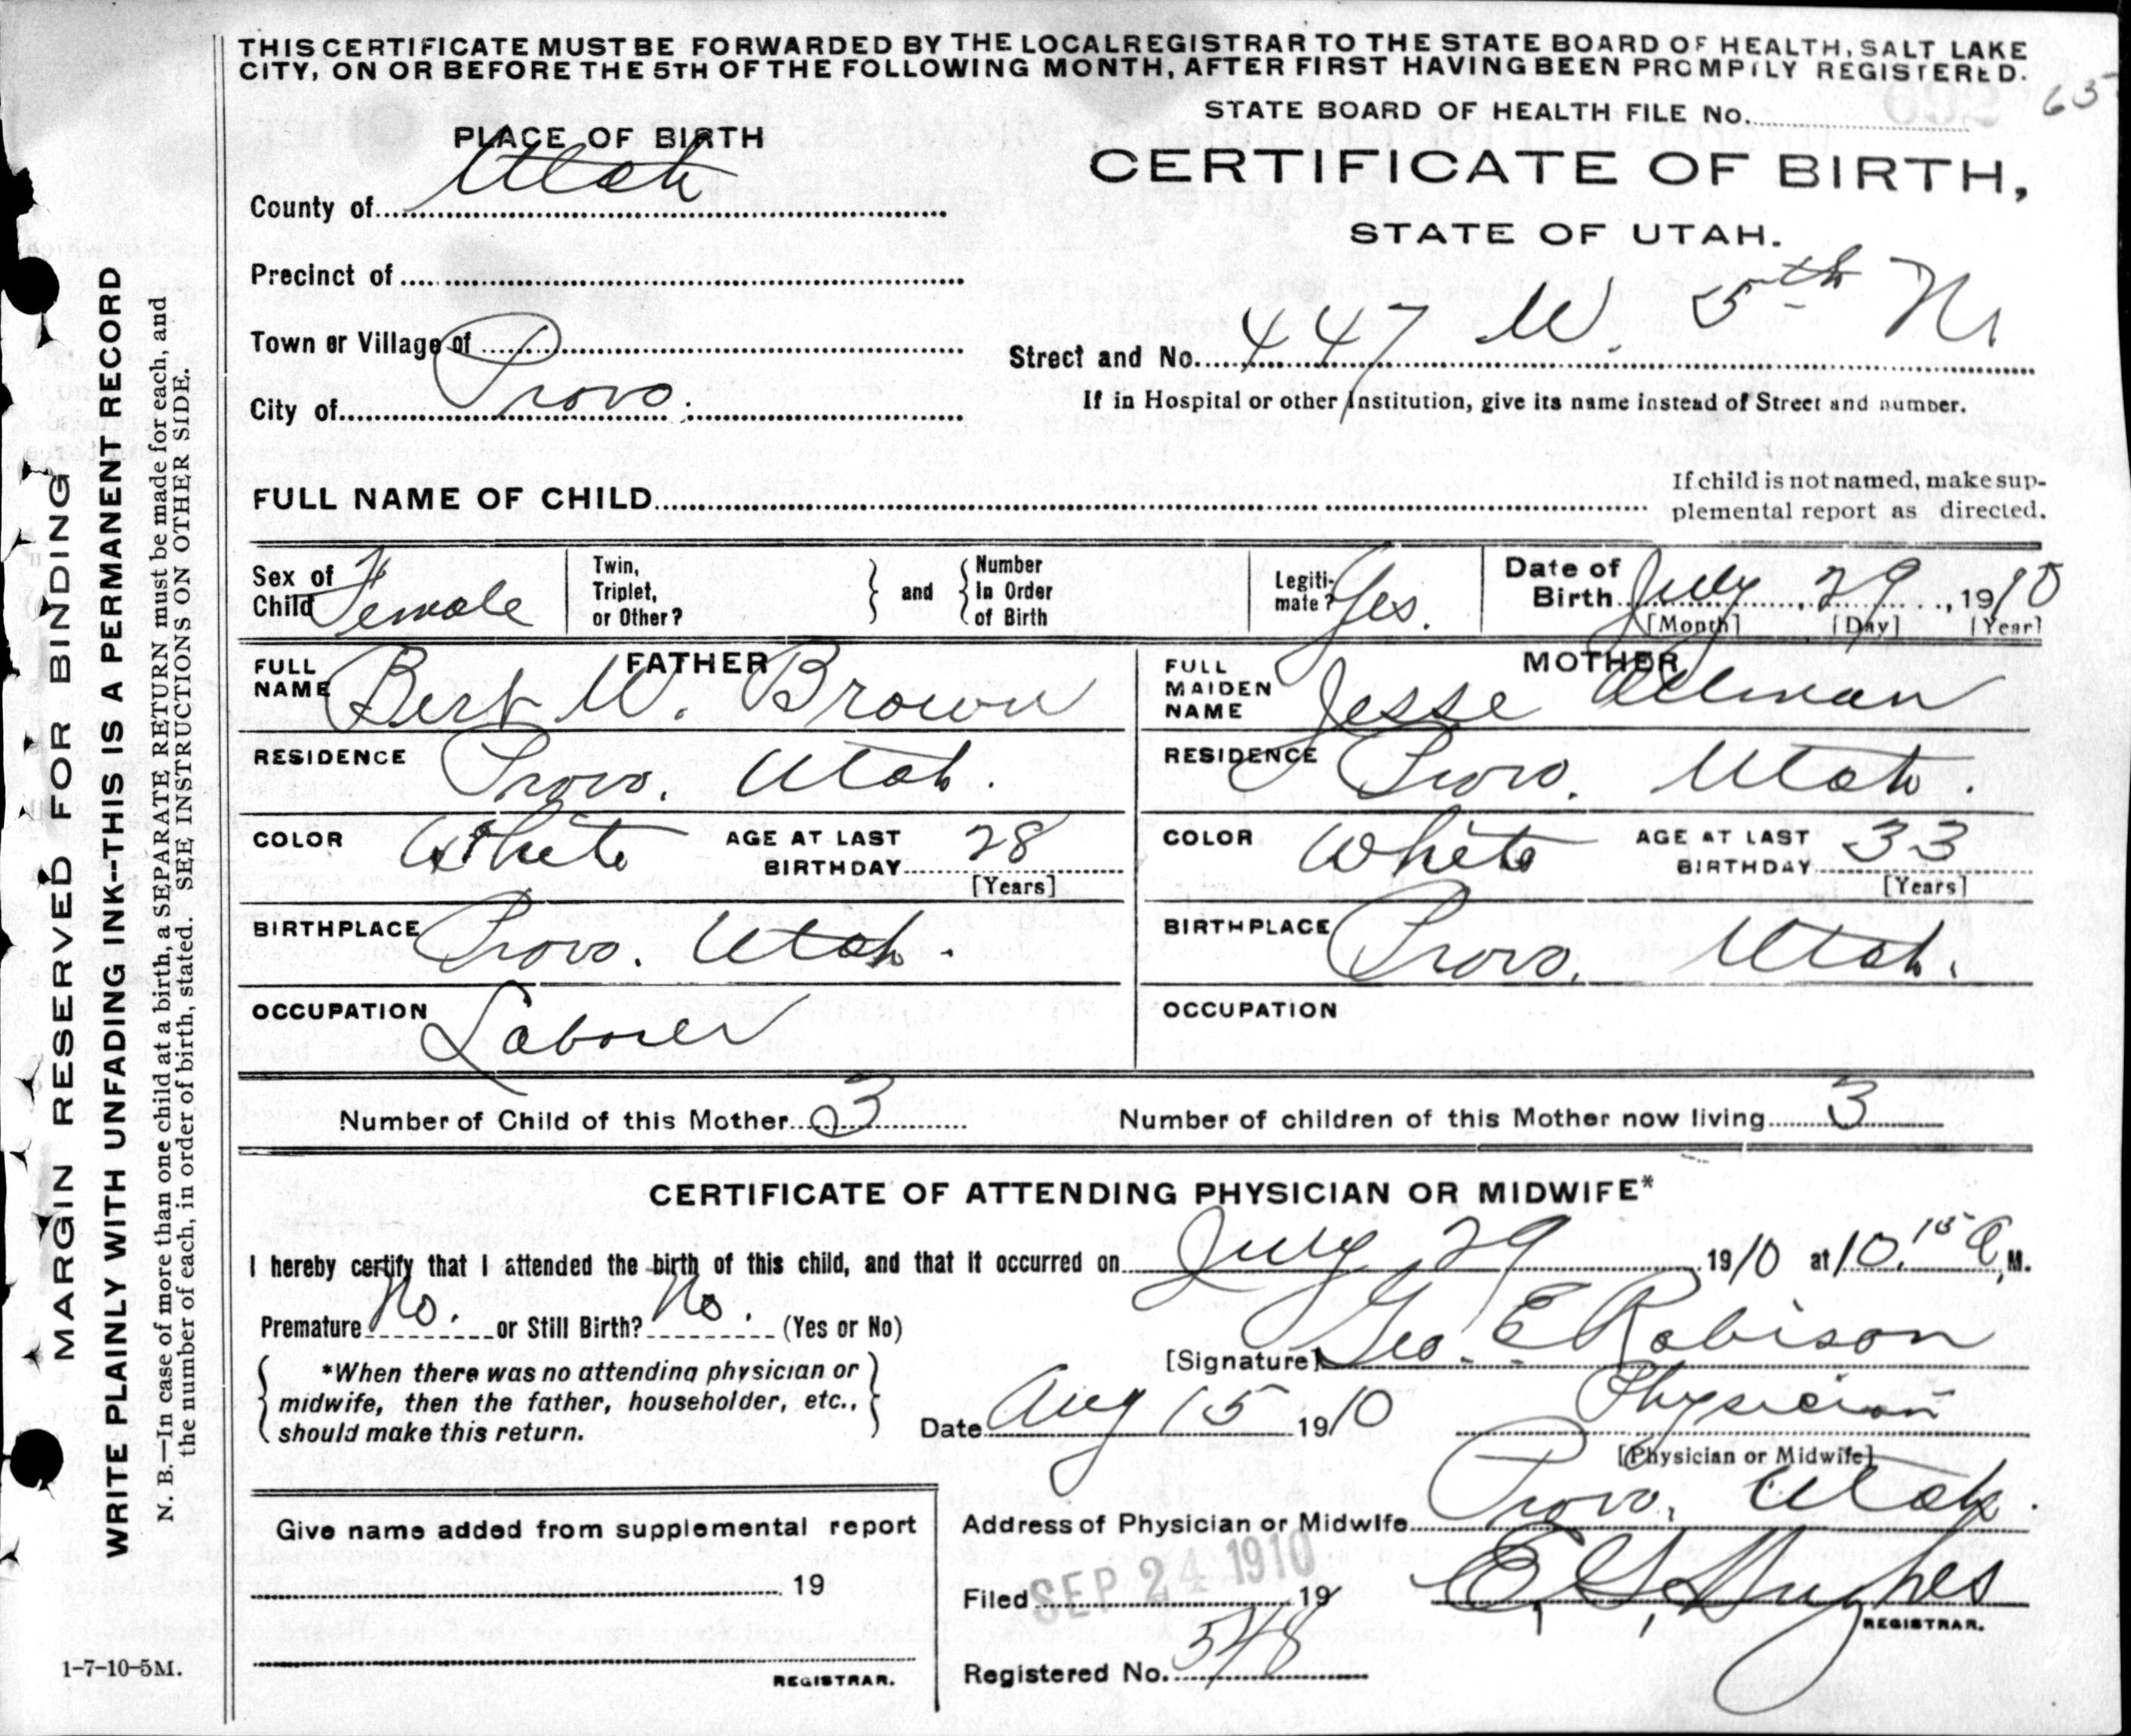 THIS CERTIFICATE MUST BE FORWARDED BY THE LOCAL REGISTRAR TO THE STATE BOARD OF HEALTH, SALT LAKE
CITY, ON OR BEFORE THE 5TH OF THE FOLLOWING MONTH, AFTER FIRST HAVING BEEN PROMPTLY REGISTERED.
65
STATE BOARD OF HEALTH FILE No.
PLACE OF BIRTH
CERTIFICATE OF BIRTH,
STATE OF UTAH.
County of Utah
Precinct of
Town or Village of
City of Provo.
Street and No. 447 W. 5th N
If in Hospital or other Institution, give its name instead of Street and number.
FULL NAME OF CHILD
If child is not named, make sup-
plemental report as directed.
Sex of Child Female
Twin, Triplet, or Other?
and
Number In Order of Birth
Legiti-mate? Yes.
Date of Birth July 29, 1910
[Month] [Day] [Year]
FATHER
FULL NAME Bert W. Brown
RESIDENCE Provo. Utah.
COLOR White AGE AT LAST BIRTHDAY 28
[Years]
BIRTHPLACE Provo. Utah.
OCCUPATION Laborer
MOTHER
FULL MAIDEN NAME Jesse Allman
RESIDENCE Provo. Utah.
COLOR White AGE AT LAST BIRTHDAY 33
[Years]
BIRTHPLACE Provo. Utah.
OCCUPATION
Number of Child of this Mother 3 Number of children of this Mother now living 3
CERTIFICATE OF ATTENDING PHYSICIAN OR MIDWIFE*
I hereby certify that I attended the birth of this child, and that it occurred on July 29 1910 at 10.15 A, M.
Premature No. or Still Birth? No. (Yes or No)
*When there was no attending physician or
midwife, then the father, householder, etc.,
should make this return.
[Signature] Geo. E Robison
Date Aug 15 1910
Physician
[Physician or Midwife]
Address of Physician or Midwife Provo, Utah.
Give name added from supplemental report
19
REGISTRAR.
Filed SEP 24 1910 19
E. G. Hughes
REGISTRAR.
Registered No. 548
1-7-10-5M.
MARGIN RESERVED FOR BINDING
WRITE PLAINLY WITH UNFADING INK--THIS IS A PERMANENT RECORD
N. B.—In case of more than one child at a birth, a SEPARATE RETURN must be made for each, and
the number of each, in order of birth, stated. SEE INSTRUCTIONS ON OTHER SIDE.